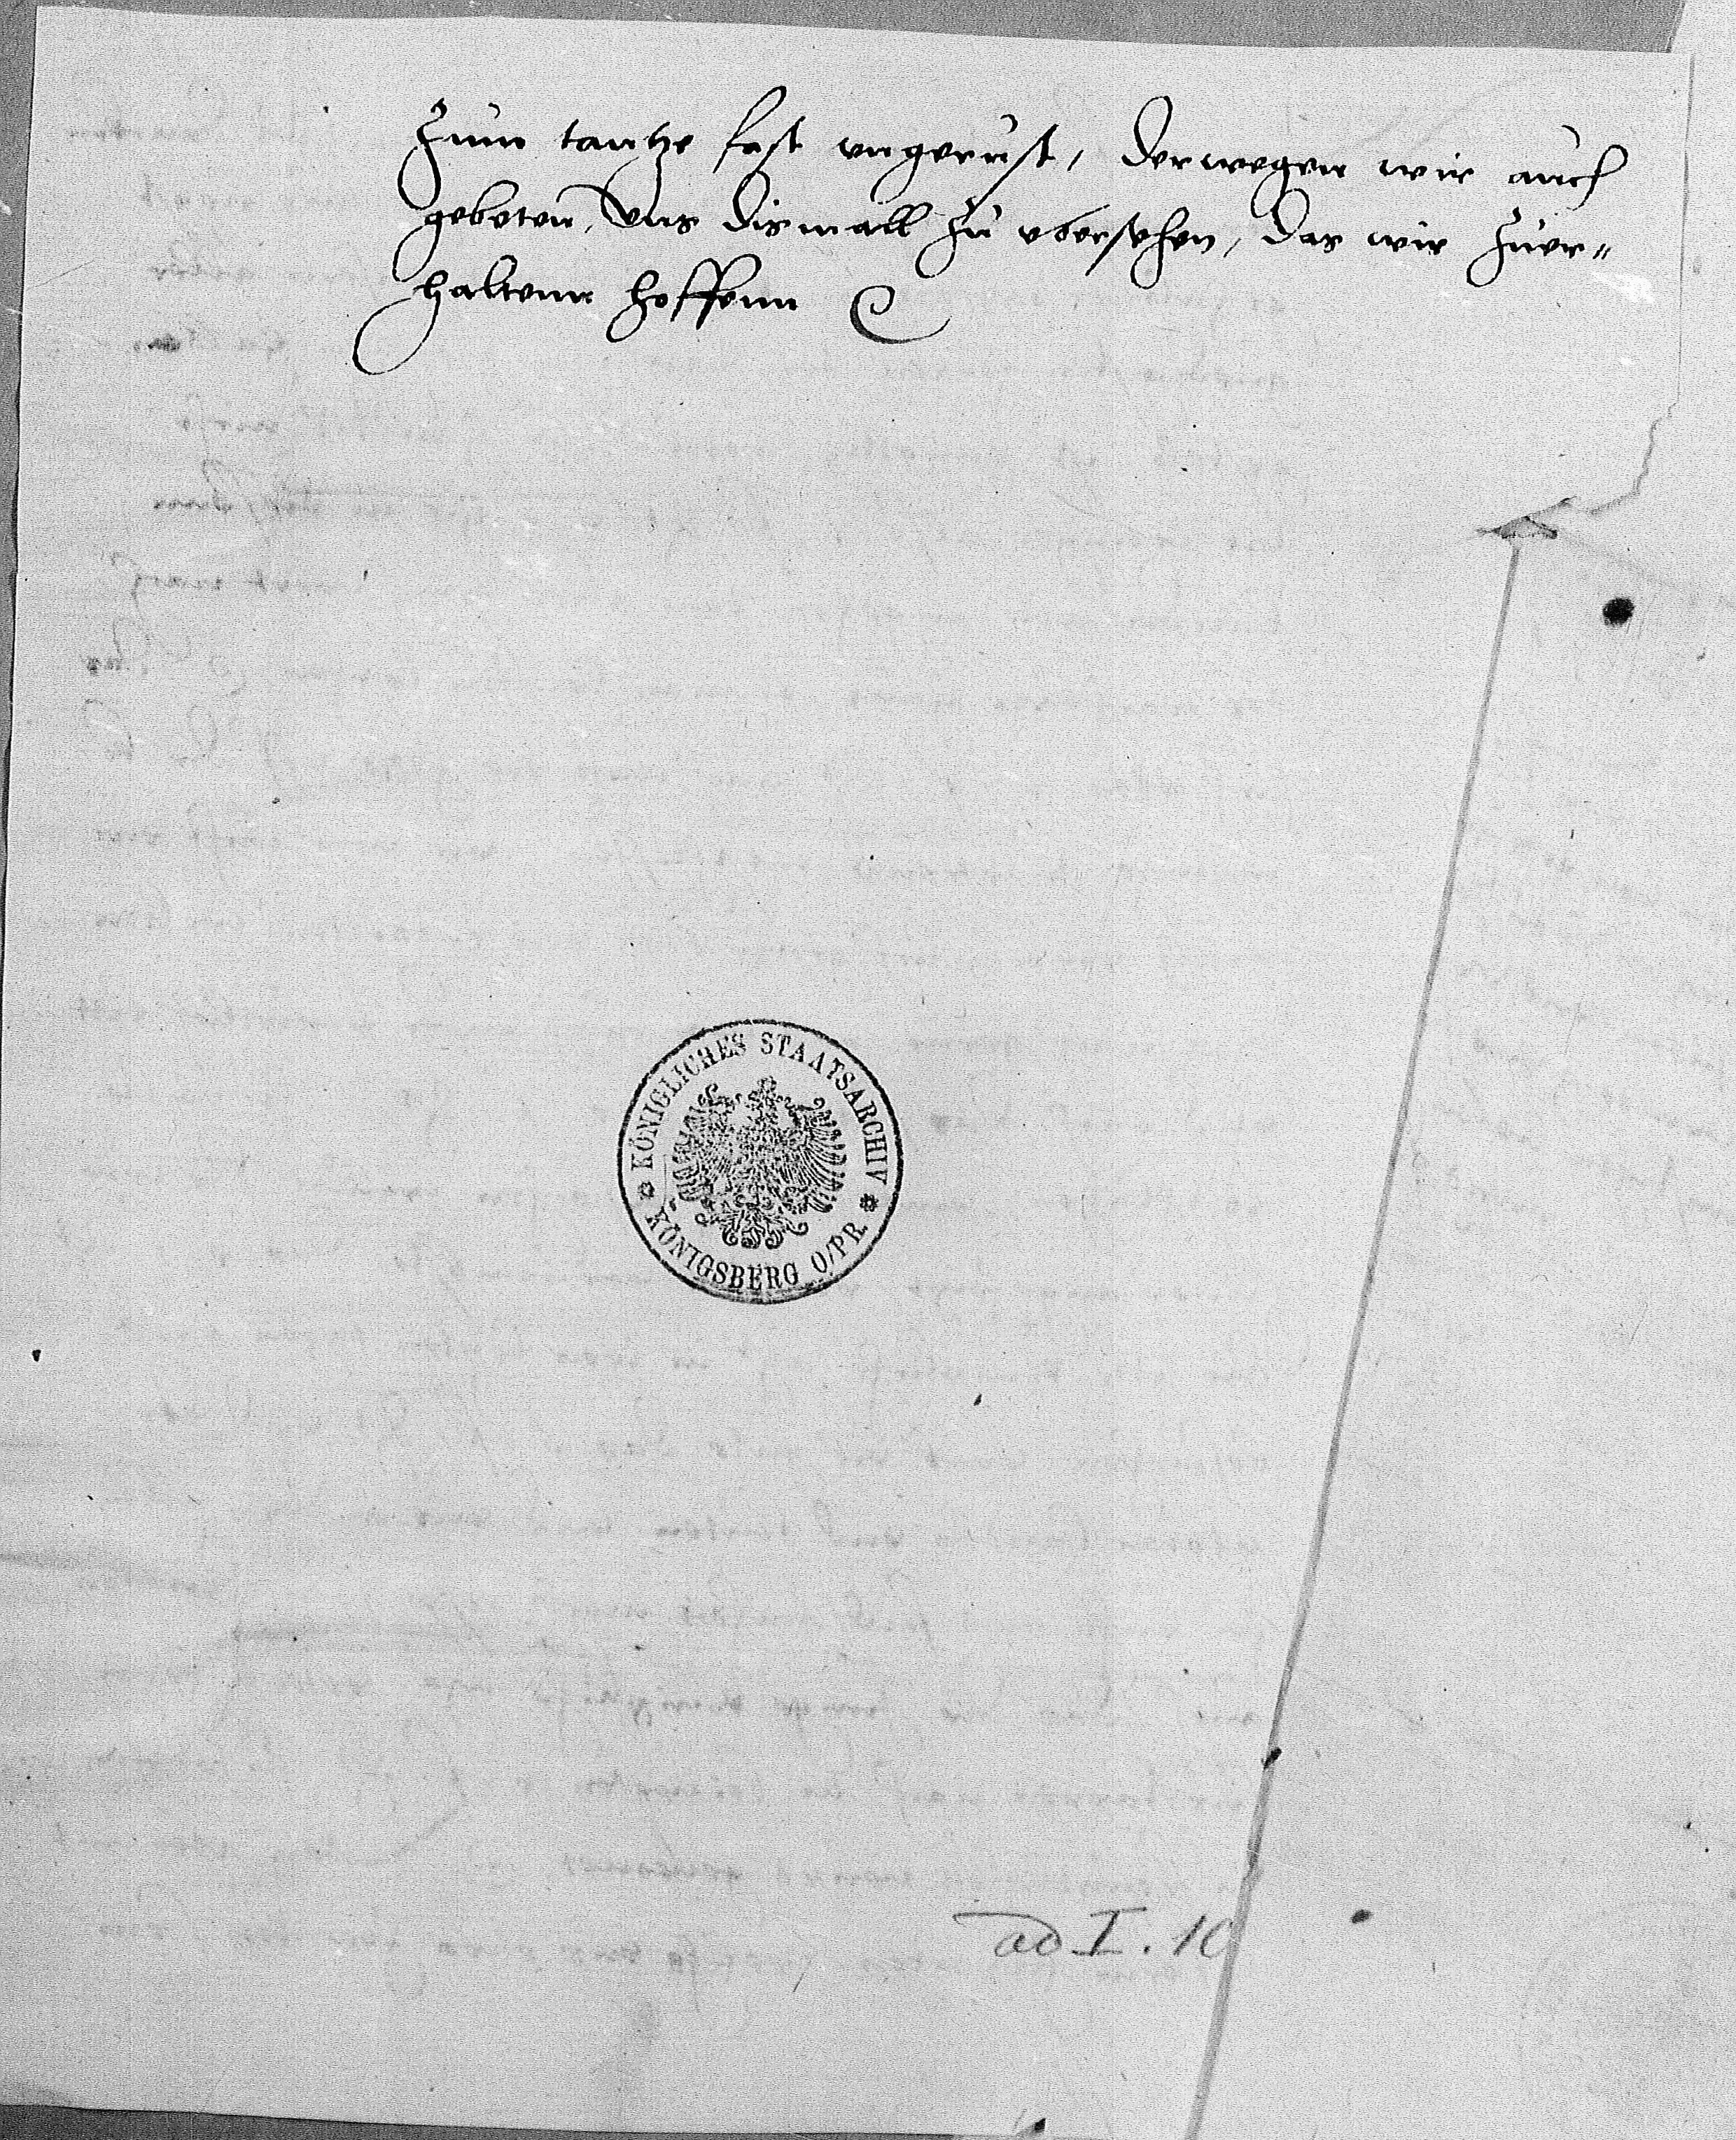 Zum tantze fast vngerust, derwegen wir auch
gebeten, Vns dismall zu vbersehen, das wir zuer-
haltenn hoffenn
KÖNIGLICHES STAATSARCHIV
KÖNIGSBERG O/PR.
ad I. 10